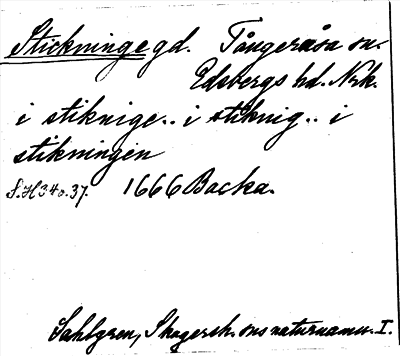 Stickninge gd. Tångeråsa sn.
Edsbergs hd. Nrk.
i stiknige.. i stiknig.. i
stikningen
S.H 34o.37. 1666 Backa.
Sahlgren, Skagersh. sns naturnamn. I.